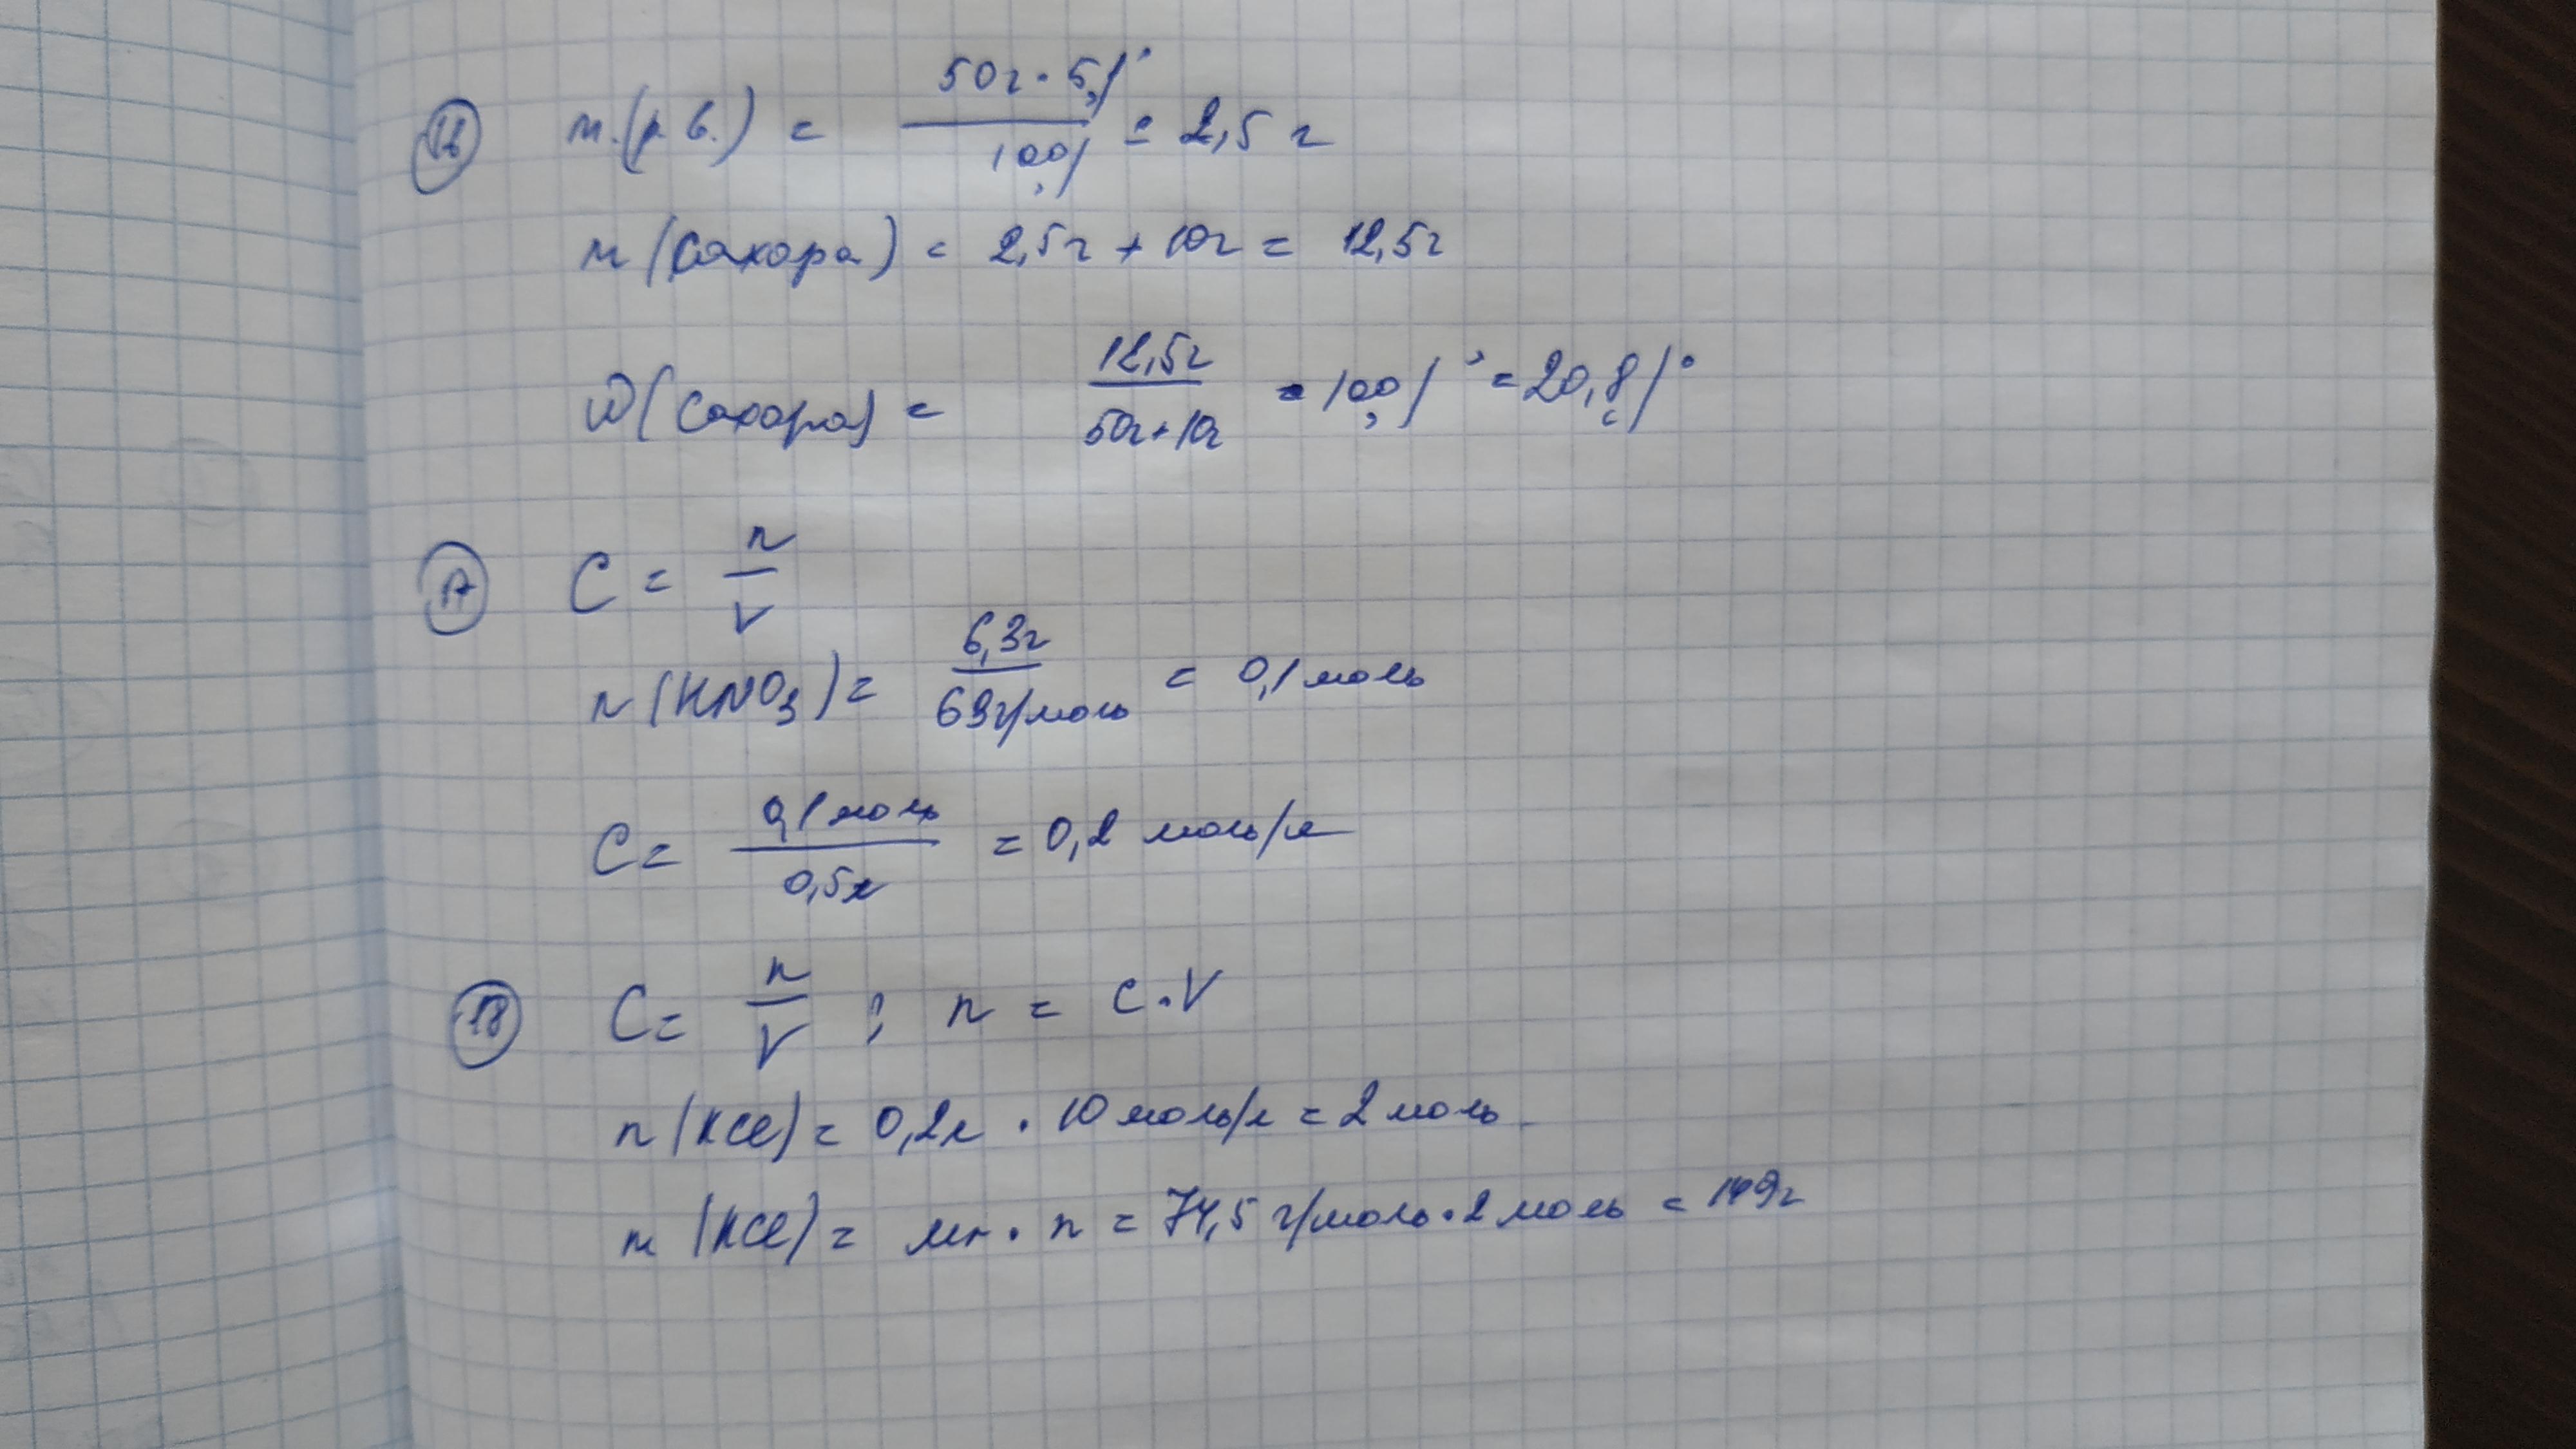 16 m.(р.в.) = 50г · 5% / 100% = 2,5 г
m (сахара) = 2,5г + 10г = 12,5г
ω(сахара) = 12,5г / 50г+10г · 100% = 20,8%
17 C = n / V
n (HNO3) = 6,3г / 63г/моль = 0,1 моль
C = 0,1 моль / 0,5л = 0,2 моль/л
18 C = n / V ; n = C·V
n (KCl) = 0,2л · 10 моль/л = 2 моль
m (KCl) = Mr · n = 74,5 г/моль · 2 моль = 149г